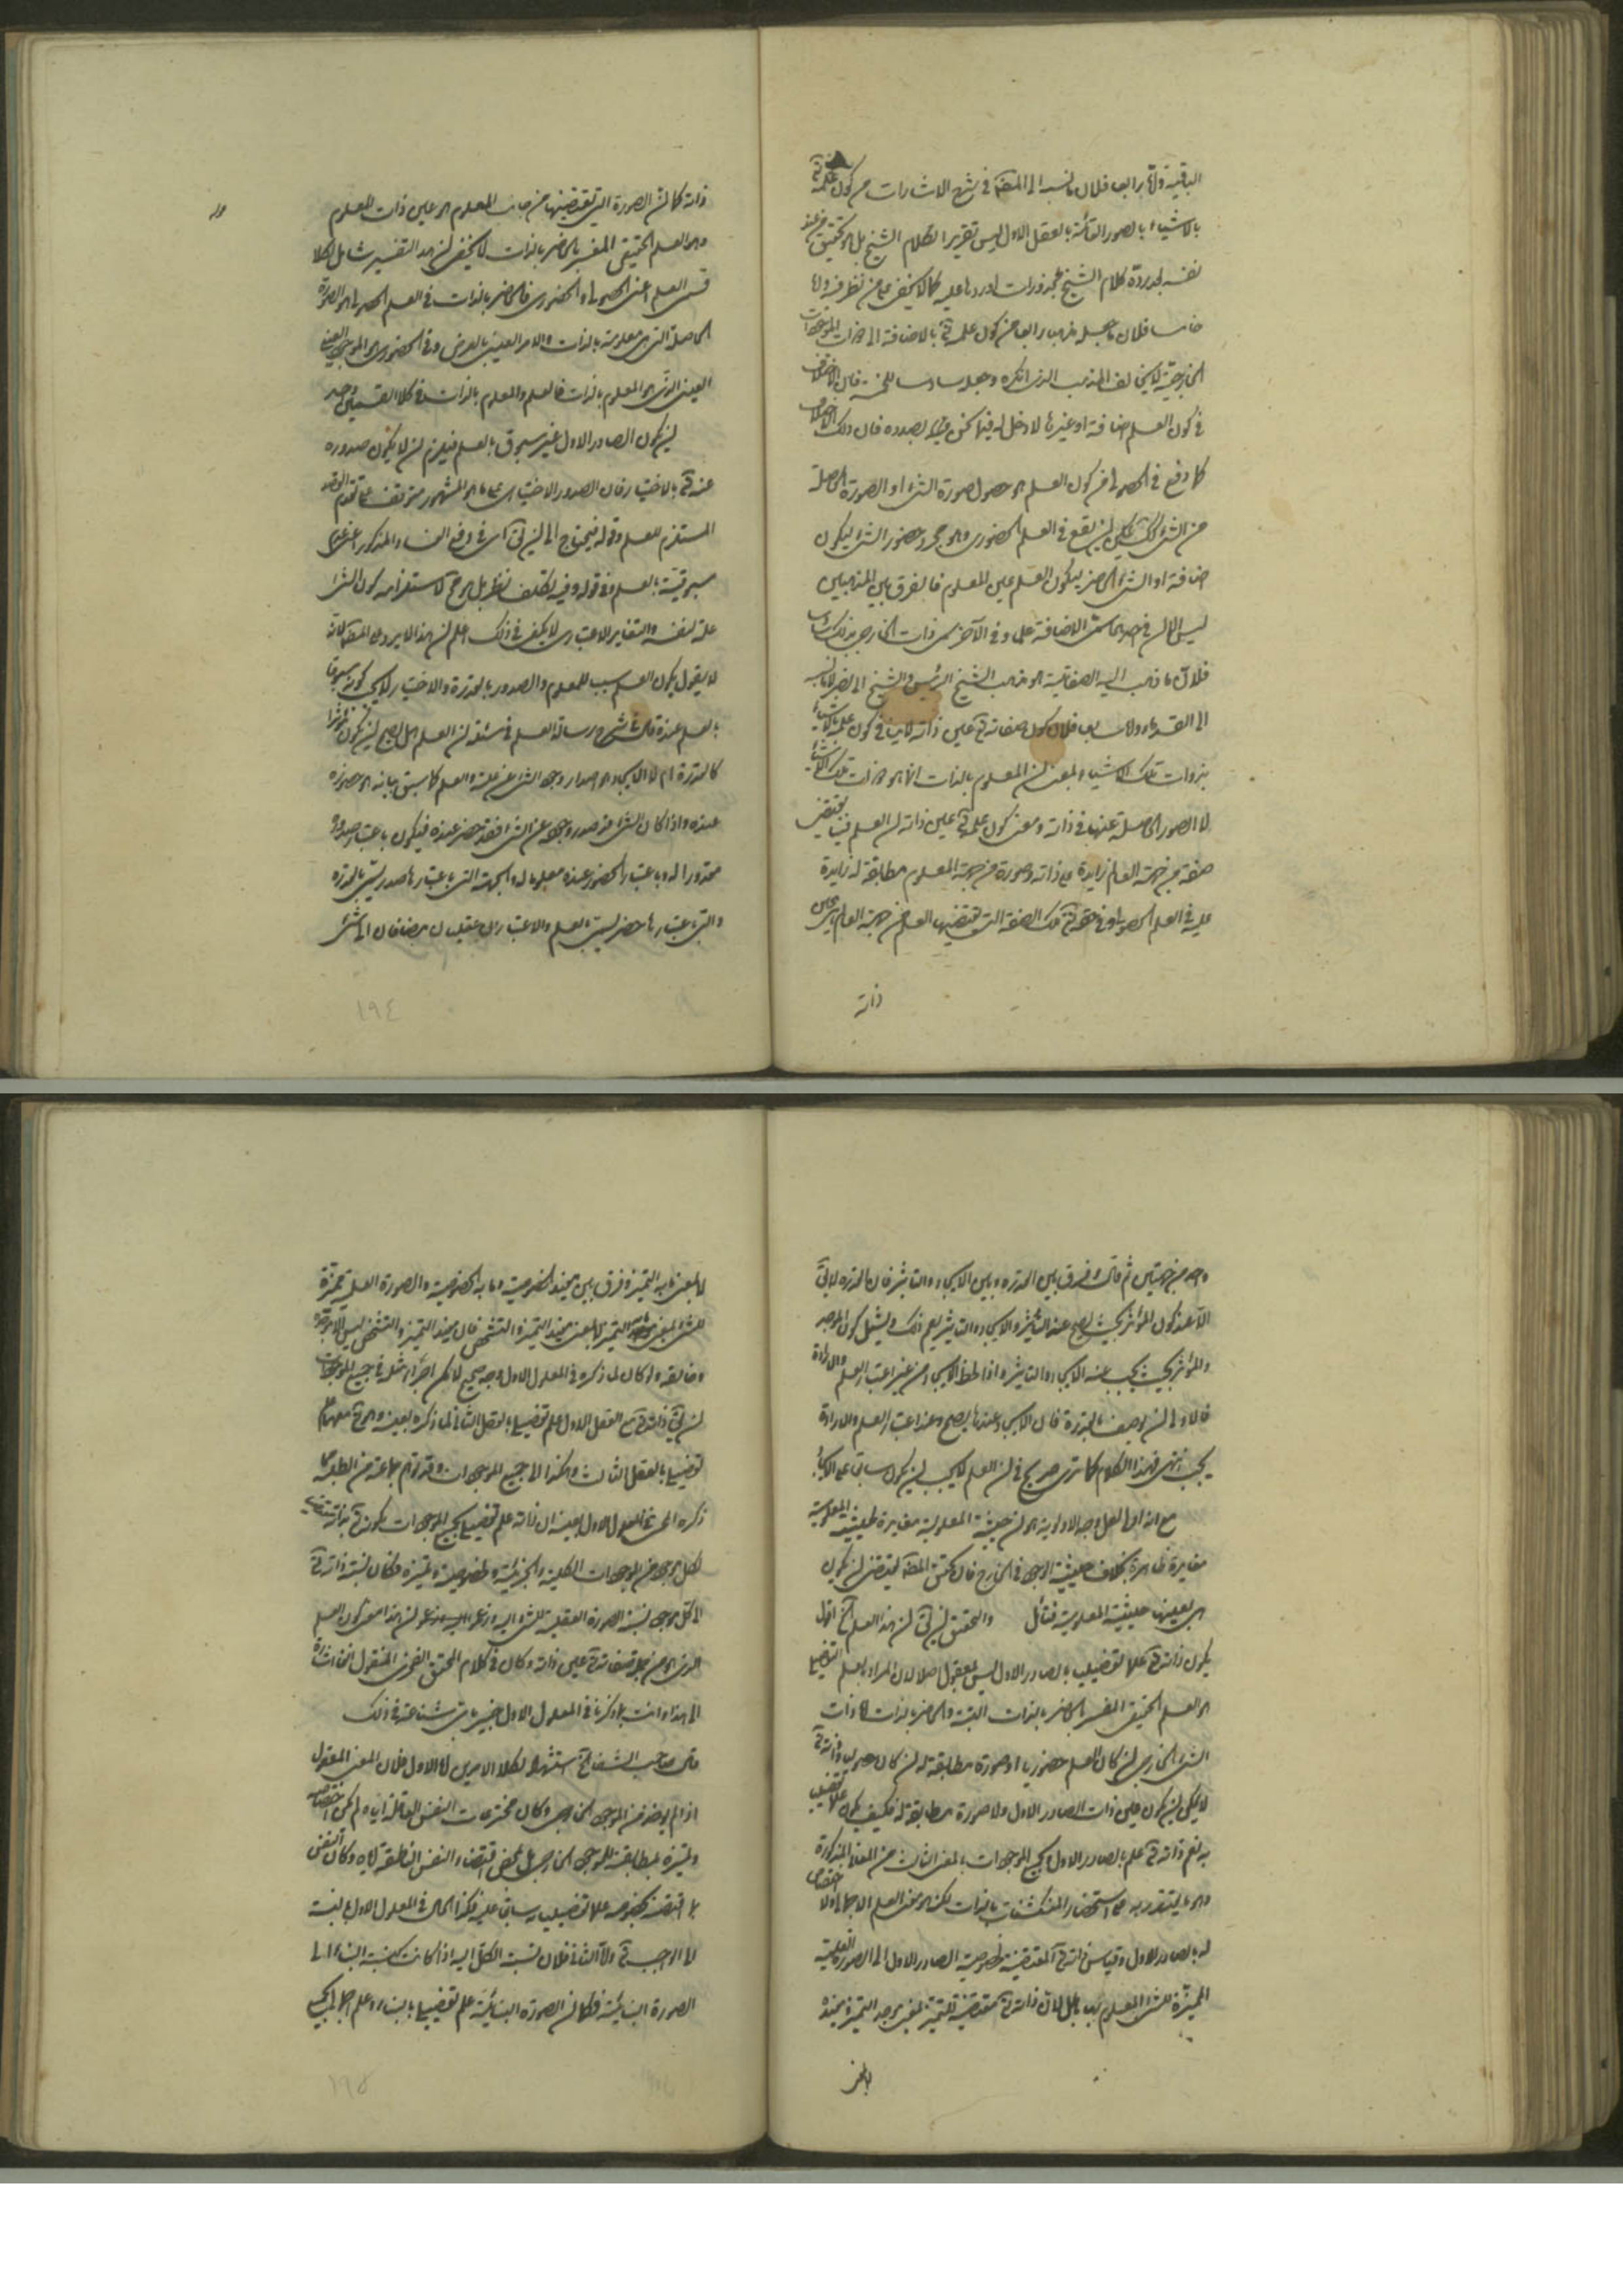 الباقية واما رابعا فلان ما نسبه الى المصنف في شرح الاشارات من كون علمه تعالى
بالاشياء بالصور القائمة بالعقل الاول ليس تقريرا لكلام الشيخ بل هو تحقيق من عند
نفسه بعد ردة كلام الشيخ بمحذورات اوردها عليه كما لا يخفى على من نظر فيه واما
خامسا فلان ما جعله مذهبا رابعا من كون علمه تعالى بالاضافة الى ذوات الموجودات
الخارجية لا يخالف المذهب الذي انكره وجعله سادسا للخمسة فان الاختلاف
في كون العلم اضافة او غيرها لا دخل له فيما نحن بصدده فان ذلك الاختلاف
كما وقع في الحصولي من كون العلم هو حصول صورة الشيء او الصورة الحاصلة
من الشيء كذلك يمكن ان يقع في العلم الحضوري وهو مجرد حضور الشيء ليكون
اضافة او الشيء الحاضر ليكون العلم عين المعلوم فالفرق بين المذهبين
ليس الا ان في احدهما الاضافة علم وفي الآخر ذوات الخارجيات
فلان ما ذهب اليه الصفاتية هو مذهب الشيخ الرئيس والشيخ ابي نصر
الى القدماء واما سابعا فلان كون صفاته تعالى عين ذاته لا ينافي كون علمه بالاشياء
بذوات تلك الاشياء بمعنى ان المعلوم بالذات انما هو ذوات تلك الاشياء
لا الصور الحاصلة عنها في ذاته ومعنى كون علمه تعالى عين ذاته ان العلم فينا يقتضي
صفة من جهة العالم زايدة على ذاته وصورة من جهة المعلوم مطابقة له زايدة
عليه في العلم الحصولي وفي حقه تعالى تلك الصفة التي يقتضيها العلم من جهة العالم هي عين
ذاته
ذاته كما ان الصورة التي تقتضيها من جانب المعلوم هو عين ذات المعلوم
وهو العلم الحقيقي المفسر بالحاضر بالذات لا يخفى ان هذا التفسير شامل لكلا
قسمي العلم اعني الحصولي والحضوري فالحاضر بالذات في العلم الحصولي هو الصورة
الحاصلة التي هي معلومة بالذات والامر العيني بالعرض وفي الحضوري هو الموجود العيني
العيني الذي هو المعلوم بالذات فالعلم والمعلوم بالذات في كلا القسمين واحد
ان يكون الصادر الاول غير مسبوق بالعلم فيلزم ان لا يكون صدوره
عنه تعالى بالاختيار فان الصدور الاختياري على ما هو المشهور متوقف على تقدم القصد
المستلزم للعلم وقوله فيحتاج الى ان يق اي في دفع الفساد المذكور اعني عدم
مسبوقيته بالعلم وفي قوله وفيه تكلف نظر بل هو محال لاستلزامه كون الشيء
علة لنفسه والتغاير الاعتباري لا يكفي في ذلك اعلم ان هذا لا يرد على المصنف لانه
لا يقول بكون العلم سببا للمعلوم والصدور بالقدرة والاختيار لا يجب كونه مسبوقا
بالعلم عنده قال في شرح رسالة العلم في مسئلة ان العلم هل يصح ان يكون مؤثرا
كالقدرة ام لا الايجاد هو اصدار وجود الشيء عن علة والعلم كما سبق بيانه هو حضوره
عنده واذا كان الشيء قد صدر وجوده عن الشيء فقد حضر عنده فيكون باعتبار صدوره
مقدورا له وباعتبار الحضور عنده معلوما له والجهة التي باعتبارها صدر يسمى بالقدرة
والتي باعتبارها حضر يسمى بالعلم والاعتباران عقليان مضافان الى شيء
واحد من جهتين ثم قال وفرق بين القدرة وبين الايجاد والتاثير فان القدرة لا يق
الا عند كون المؤثر بحيث يصح عنه التاثير والايجاد والتاثير يعم ذلك ويشمل كون الموجد
والمؤثر بحيث يجب عنه الايجاد والتاثير واذا لوحظ الايجاد من غير اعتبار العلم والارادة
فالاولى ان يوصف بالقدرة فان الايجاد عندها يصح وعند اعتبار العلم والارادة
يجب انتهى فهذا الكلام كما ترى صريح في ان العلم لا يجب ان يكون سابقا على الايجاد
مع انه اولى لعل وجه الاولوية هو ان حيثية المعلومية مغايرة لحيثية المعلومية
مغايرة ظاهرة بخلاف حيثية الوجود في الخارج فان تحقيق المصنف يقتضي ان يكون
هي بعينها حيثية المعلومية فتامل والتحقيق ان يق ان هذا العلم آخ اقول
يكون ذاته تعالى علما تفصيليا بالصادر الاول ليس بمعقول اصلا لان المراد بالعلم التفصيلي
هو العلم الحقيقي المفسر بالحاضر بالذات البتة والحاضر بالذات اما ذات
الشيء الخارجي ان كان العلم حضوريا او صورة مطابقة له ان كان حصوليا وذاته تعالى
لا يمكن ان يكون عين ذات الصادر الاول ولا صورة مطابقة له فكيف يكون علما تفصيليا
به نعم ذاته تعالى علم بالصادر الاول وبجميع الموجودات بالمعنى الثالث من المعاني المذكورة
وهو ما يقتدر به على استحضار المنكشفات بالذات لكنه هو معنى العلم الاجمالي ولا اختصاص
له بالصادر الاول وقياس ذاته تعالى المقتضية لخصوصية الصادر الاول الى الصورة العلمية
المميزة للشيء المعلوم بها باطل لان ذاته تعالى مقتضية للتميز بمعنى موجد التميز ومفيده
لا بمعنى
لا بمعنى ما به التميز وفرق بين مفيد الخصوصية وما به الخصوصية والصورة العلمية مميزة
للشيء بمعنى ما به التميز لا بمعنى مفيد التميز والتشخص فان مفيد التميز والتشخص ليس الا موجده
وخالقه ولو كان ما ذكره في المعلول الاول وجه صحيح لامكن اجراء مثله في جميع الموجودات
لان يق ذاته تعالى مع العقل الاول علم تفصيلي بالعقل الثاني لما ذكره بعينه وهو تعالى معهما علم
تفصيلي بالعقل الثالث وهكذا الى جميع الموجودات وقد توهم جماعة من الطلبة مما
ذكره المحشي في المعلول الاول بعينه ان ذاته علم تفصيلي بجميع الموجودات لكونه تعالى بذاته مقتضيا
لكل موجود من الموجودات الكلية والجزئية ولخصوصيته وتميزه فكان نسبة ذاته تعالى
الى كل موجود نسبة الصورة العقلية للشيء اليه وزعموا ان هذا معنى كون العلم
الذي هو من جملة صفاته تعالى عين ذاته وكان في كلام المحقق الخفري المنقول انفا اشارة
الى هذا وانت بما ذكرنا في المعلول الاول خبير باتي شناعة في ذلك
قال صاحب الشفا آخ استشهاد لكلا الامرين اما الاول فلان المعنى المعقول
اذا لم يوخذ من الموجود الخارجي وكان مخترعات النفس العاقلة اياه ولم يكن اختصاصه
وتميزه لمطابقته للموجود الخارجي بل بمحض اقتضاء النفس الناطقة اياه وكان النفس
بما اقتضته بخصوصه علما تفصيليا سابقا عليه فكذا الحال في المعلول الاول بالنسبة
الى الواجب تعالى واما الثاني فلان نسبة الكل اليه اذا كانت كنسبة البناء الى
الصورة البنائية فكما ان الصورة البنائية علم تفصيلي بالبناء وعلم اجمالي بجميع
١٩٤
١٩٥